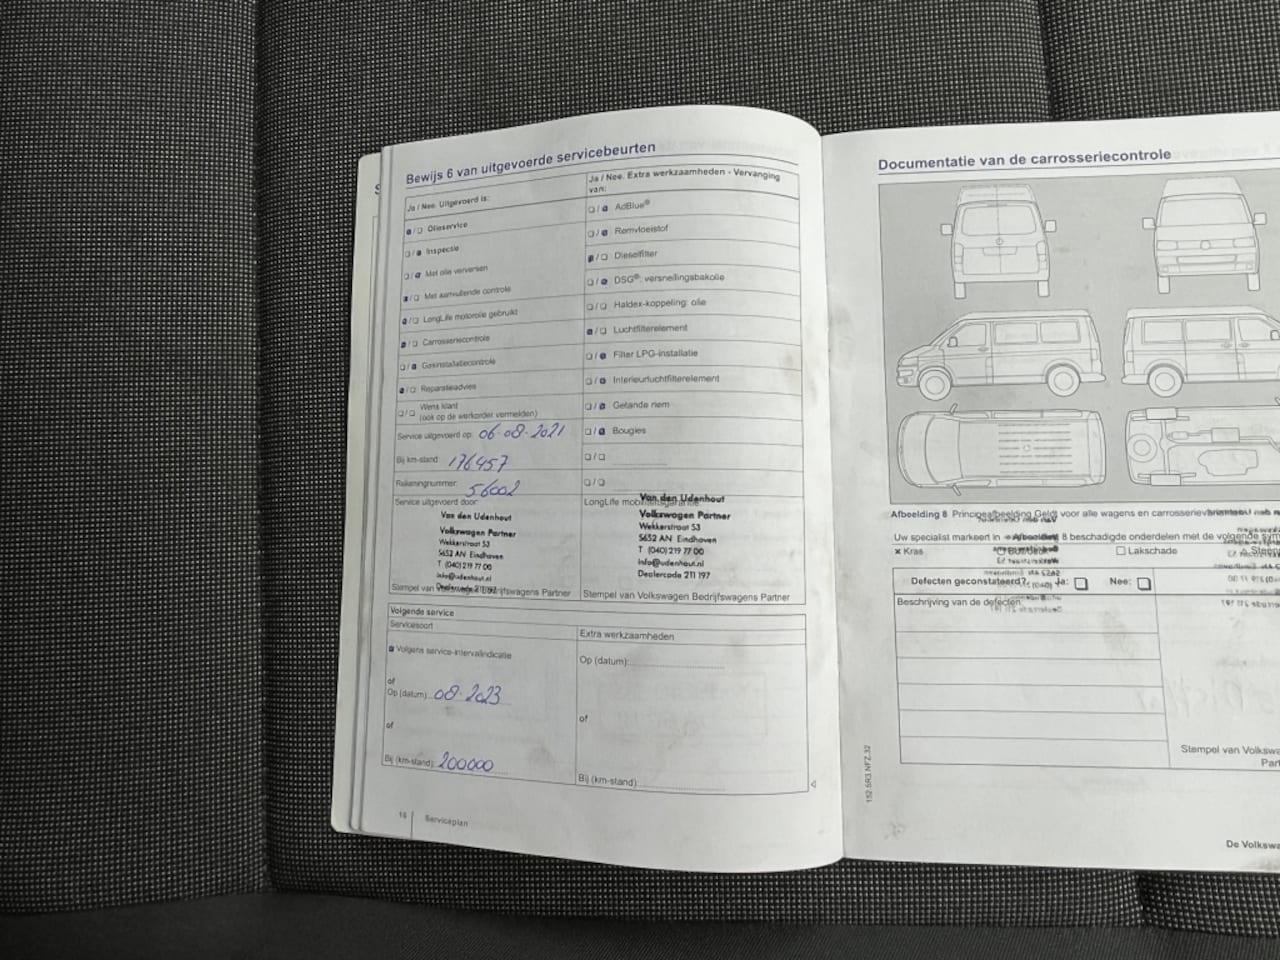 Bewijs 6 van uitgevoerde servicebeurten
Ja / Nee. Uitgevoerd is:
Olieservice
Inspectie
Met olie verversen
Met aanvullende controle
LongLife motorolie gebruikt
Carrosseriecontrole
Gasinstallatiecontrole
Reparatieadvies
Wens klant
(ook op de werkorder vermelden)
Service uitgevoerd op: 06-08-2021
Bij km-stand: 176457
Rekeningnummer: 56002
Service uitgevoerd door:
Van den Udenhout
Volkswagen Partner
Wekkerstraat 53
5652 AN Eindhoven
T (040) 219 77 00
info@udenhout.nl
Dealercode 211 197
Stempel van Volkswagen Bedrijfswagens Partner
Ja / Nee. Extra werkzaamheden - Vervanging
van:
AdBlue®
Remvloeistof
Dieselfilter
DSG®: versnellingsbakolie
Haldex-koppeling: olie
Luchtfilterelement
Filter LPG-installatie
Interieurluchtfilterelement
Getande riem
Bougies
LongLife mobiliteitsgarantie:
Van den Udenhout
Volkswagen Partner
Wekkerstraat 53
5652 AN Eindhoven
T (040) 219 77 00
info@udenhout.nl
Dealercode 211 197
Stempel van Volkswagen Bedrijfswagens Partner
Volgende service
Servicesoort
Volgens service-intervalindicatie
of
Op (datum): 08-2023
of
Bij (km-stand): 200000
Extra werkzaamheden
Op (datum):
of
Bij (km-stand):
16 Serviceplan
Documentatie van de carrosseriecontrole
Afbeelding 8 Principeafbeelding Geldt voor alle wagens en carrosserievarianten
Uw specialist markeert in Afbeelding 8 beschadigde onderdelen met de volgende sym
× Kras
Lakschade
Defecten geconstateerd? Ja: Nee:
Beschrijving van de defecten:
Stempel van Volkswa
Par
152.5R3.NFZ.32
De Volkswa